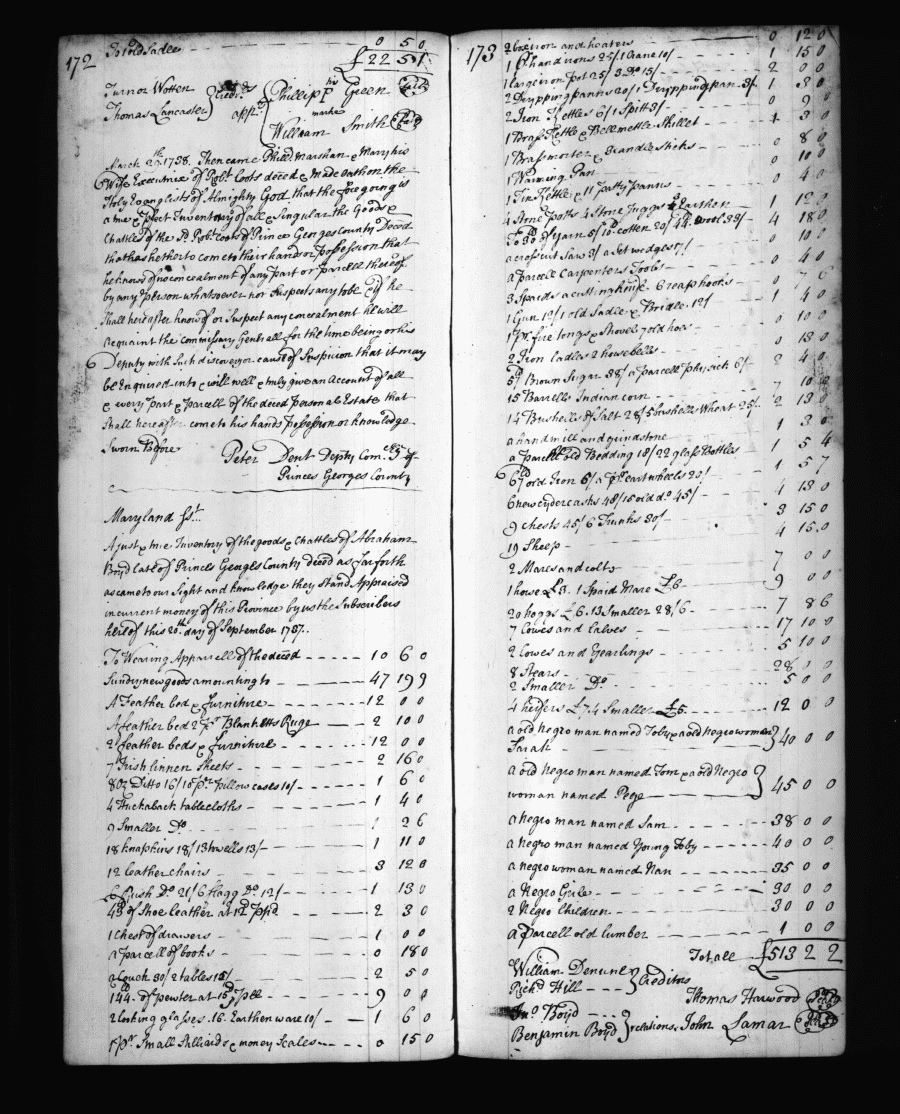 172
To 1 old Sadle - - 0 5 0
£22 5 1
Turnor Wotten
Thomas Lancaster } Credrs appd
Phillip P Green
his
marke
Seal
William Smith Seal
March 29th 1738. Then came Phill Marshan & Mary his
Wife Executrix of Robt Coots deced & made Oath on the
Holy Evanglists of Almighty God that the foregoing is
a true & pfect Inventory of all & Singular the Goods &
Chattles of the Sd Robt Coots of Prince Georges County Deced
that has hetherto come to their hands or possession that
he knows of no concealment of any part or parcell thereof
by any Person whatsoever nor Suspects any to be & if he
Shall hereafter know of or Suspect any concealment he will
acquaint the Commissary Generall for the time being or his
Deputy with Such discovery or cause of Suspicion that it may
be Enquired into & will well & truly give an Account of all
& every part & parcell of the deced personal Estate that
Shall hereafter come to his hands possession or knowledge
Sworn Before
Peter Dent Depty Comry of
Princes Georges County
Maryland Ss
A just & true Inventory of the goods & chattles of Abraham
Boyd late of Princes Georges County deced as far forth
as came to our Sight and knowledge they Stand Appraised
in current money of this Province by us the Subscribers
here of this 20th day of September 1737.
To Wearing Apparrell of the deced - - - - 10 6 0
Sundry new goods amounting to - - - - 47 19 9
A Feather bed & furniture - - - - 12 0 0
A feather bed 2 pr Blanketts Ruge - - 2 10 0
2 feather beds & furniture - - - - 12 0 0
7 Irish linnen Sheets - - - 2 16 0
8 Oz Ditto 16/ 10 pr pillow cases 10/ - - 1 6 0
4 Huckaback tablecloths - - - - 1 4 0
9 Smaller Do - - - - 1 2 6
18 knapkins 18/ 13 towells 13/ - - 1 11 0
12 leather chairs - - - 3 12 0
6 Rush Do 21/ 6 flagg Do 12/ - - - 1 13 0
43 lb of Shoe leather at 12d P lb - - - 2 3 0
1 Chest of drawers - - - 1 0 0
a parcell of books - - - - 0 18 0
a Couch 30/ 2 tables 15/ - - - 2 5 0
144 lb of pewter at 15d P lb - - - 9 0 0
2 looking glasses .16. Earthen ware 10/ - - 1 6 0
1 pr Small Stilliards & money Scales - - - 0 15 0
173
2 box iron and heaters - - 0 12 0
1 pr handirons 25/ 1 Crane 10/ - - 1 15 0
1 large iron pot 25/ 3 Do 15/ - - 2 0 0
2 Drypping panns 20/ 1 Drypping pan 3/ - 1 3 0
2 Iron Kettles 6/ 1 Spitt 3/ - 0 9 0
1 Brass Kettle & Bellmettle Skillet - - 1 3 0
1 Brass morter & 3 Candlesticks - - 0 8 0
1 Warming Pan - 0 10 0
1 Tin Kettle & 11 patty panns - - 0 4 0
4 Stone potts 4 Stone Juggs & Earthen - 1 12 0
To 30 lb of yarn 5/ 10 lb cotten 20/ 44 lb wool 33/ - 4 18 0
a cross cut Saw 3/ a Set wedges 7/ - 0 10 0
a parcell Carpenters Tools - - 0 4 0
3 Spaids a cutting knife 6 reap hooks - - 0 7 6
1 Gun 12/ 1 old Sadle & Bridle 12/ - 1 4 0
1 pr fire tongs & Shovel 7 old hoes - - 0 10 0
2 Iron ladles 2 how bells - - 0 13 0
57 lb Brown Sugar 38/ a parcell physick 6/ - 2 4 0
15 Barrells Indian corn - - 7 10 0
14 Bushells of Salt 28/ 5 bushells Wheat 25/ - 2 13 0
a hand mill and grindstone - 1 3 0
a parcell old Bedding 18/ 22 glass Bottles - 1 5 4
67 lb old Iron 6/ a pr cart wheels 20/ - 1 5 7
6 new cyder casks 48/ 15 old do 45/ - - 4 13 0
9 Chests 45/ 6 Trunks 30/ - - - 3 15 0
19 Sheep - - - 4 15 0
2 Mares and colts - - - 7 0 0
1 horse £3. 1 Spaid Mare £6 - - 9 0 0
20 hoggs £6. 13 Smaller 28/6 - - - 7 8 6
7 Cowes and Calves - - - - 17 10 0
2 Cowes and Yearlings - - - - 5 10 0
8 Stears - - - 28 0 0
2 Smaller Do - - - 5 0 0
4 heifers £7. 4 Smaller £5 - - - 12 0 0
a old negro man named Toby & a old negro woman
Sarah - - - - } 40 0 0
a old Negro man named Tom & a old Negro
woman named Pege - - - } 45 0 0
a negro man named Sam - - - - 38 0 0
a negro man named Young Toby - - - - 40 0 0
a negro woman named Nan - - - - 35 0 0
a Negro Girle - - - - 30 0 0
2 Negro Children - - - - 30 0 0
a parcell old lumber - - - - 1 0 0
Totall - £513 2 2
William Denune
Richd Hill - - } Creditors
Thomas Harwood Seal
Jno Boyd - - -
Benjamin Boyd } relations. John Lamar Seal